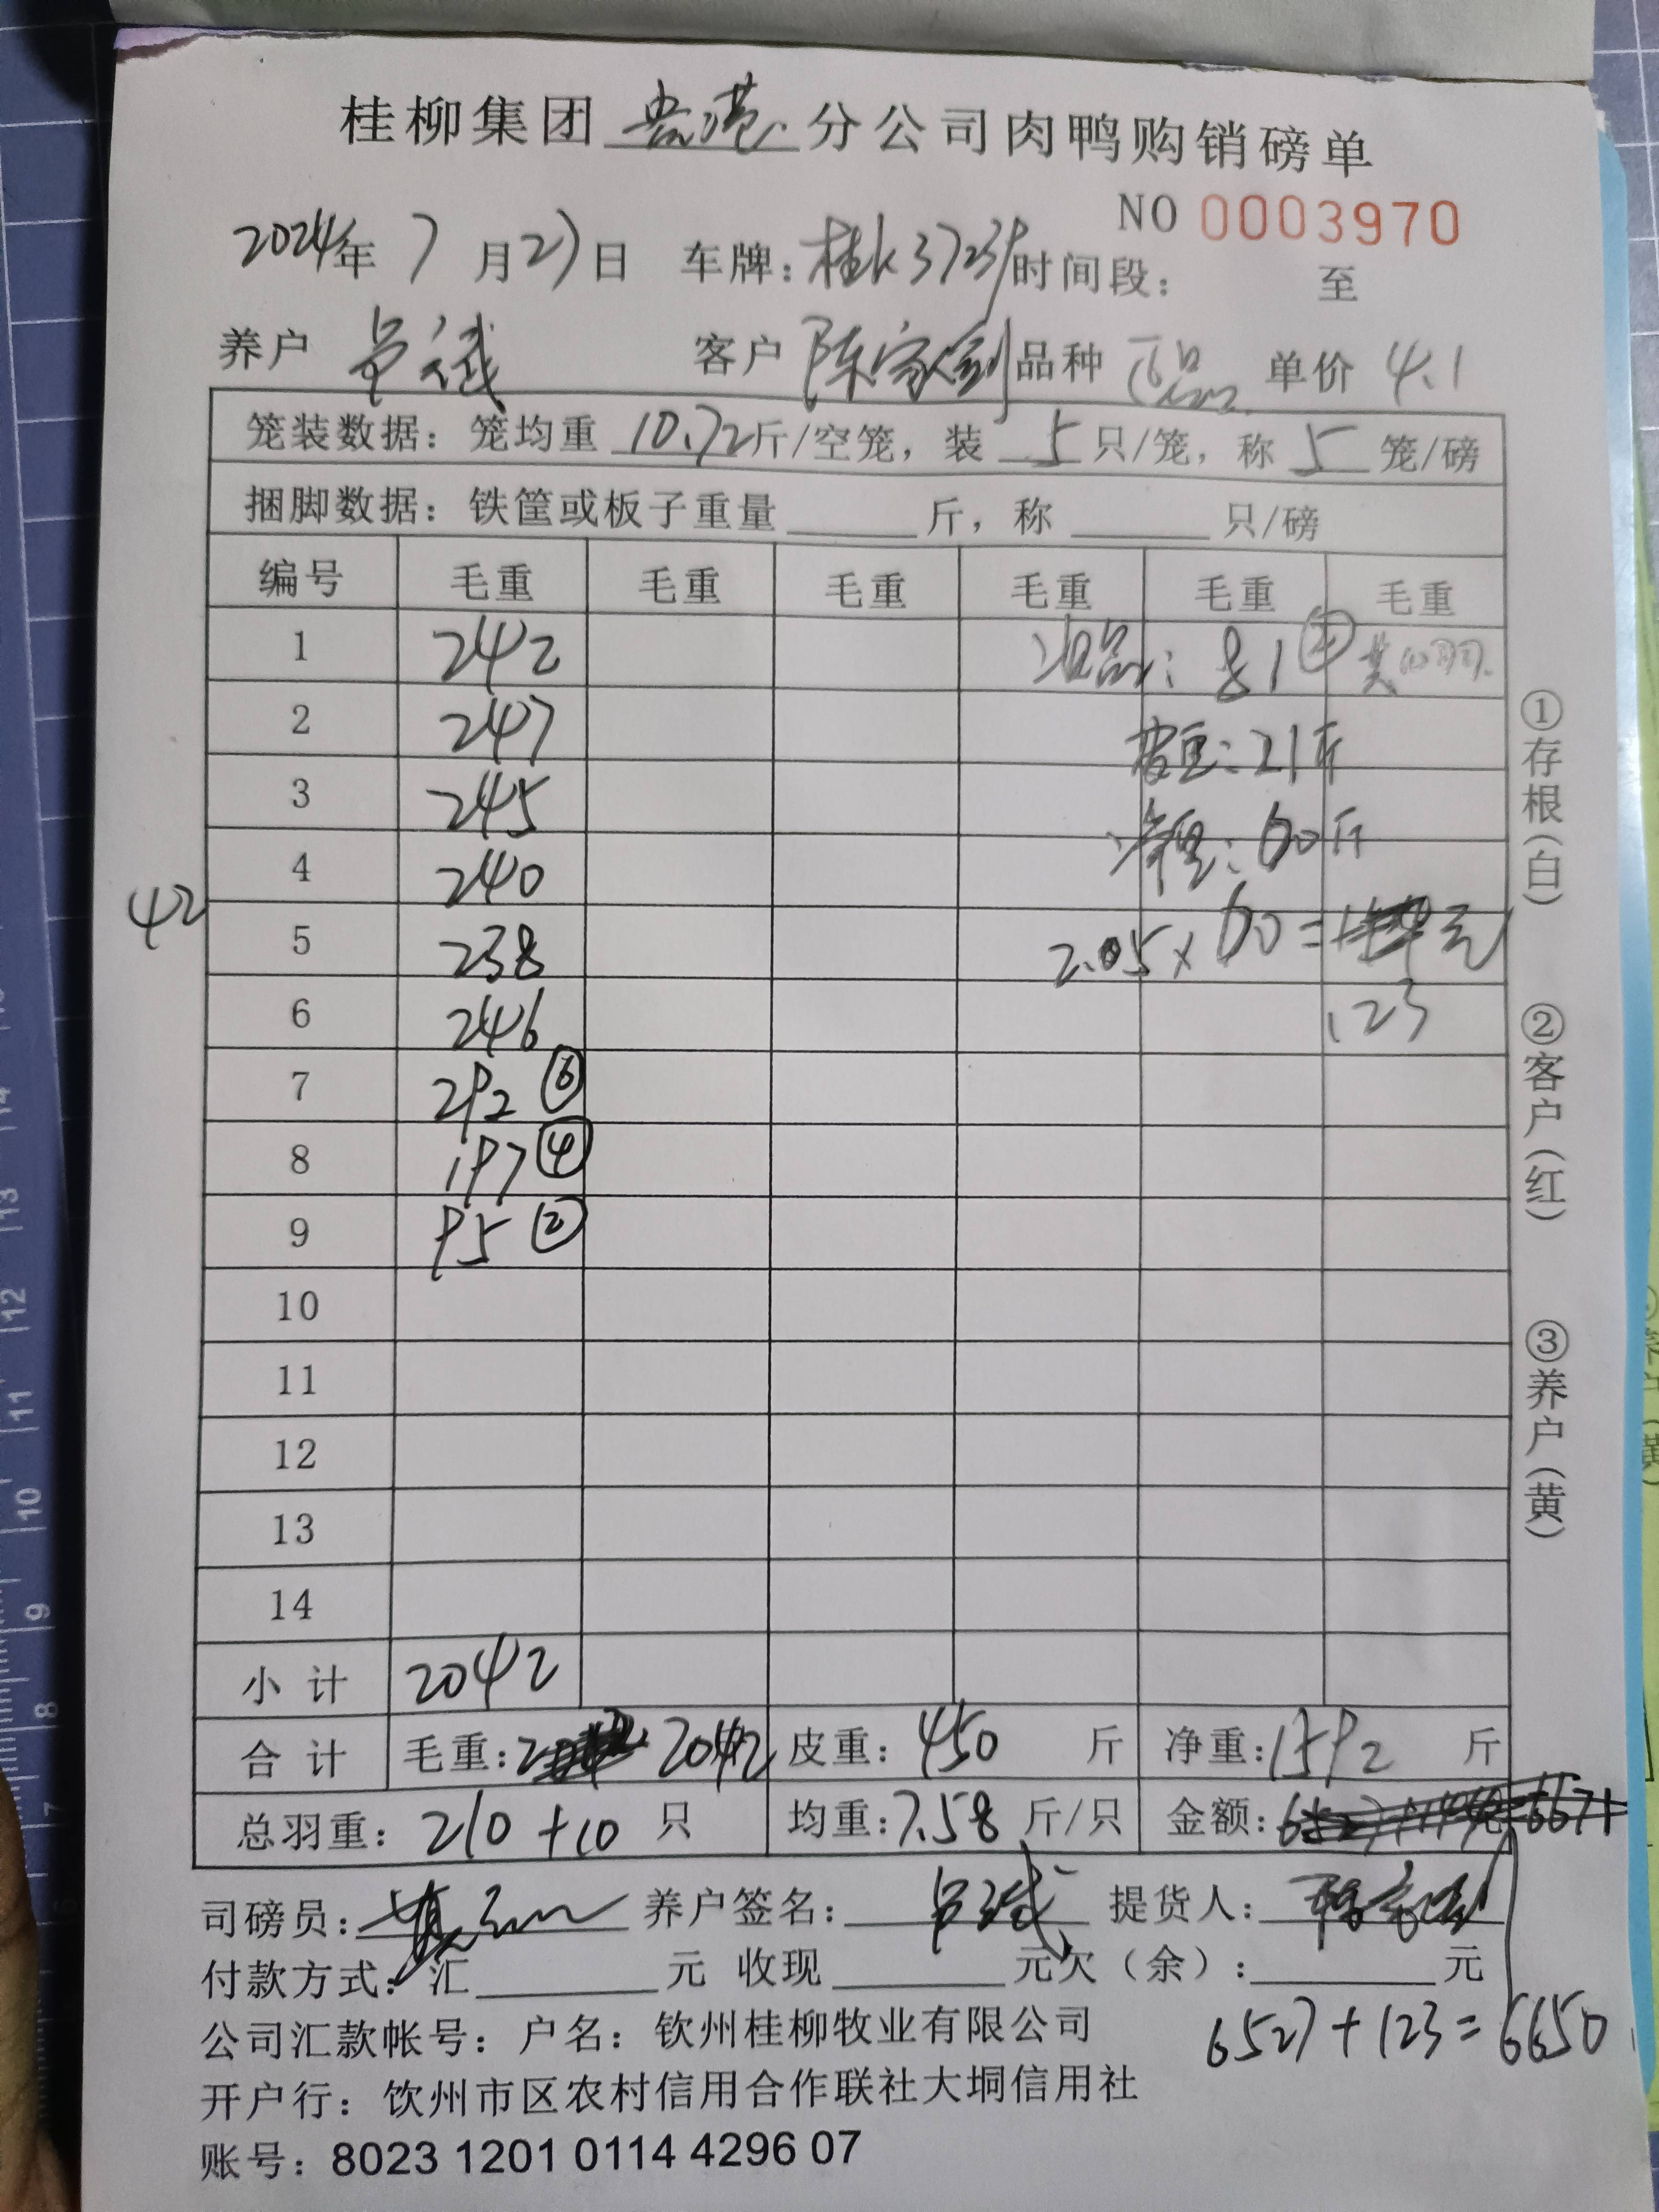 桂柳集团 贵港 分公司肉鸭购销磅单
NO 0003970
2024年 7 月27日 车牌: 时间段: 至
养户 客户 陈家剑 品种 正品 单价 4.1
笼装数据: 笼均重 10.72斤/空笼, 装 5 只/笼, 称 5 笼/磅
捆脚数据: 铁筐或板子重量 斤, 称 只/磅
编号 毛重 毛重 毛重 毛重 毛重 毛重
1 242 次品: 81 ②
2 247 皮重: 21斤
3 245 净重: 60斤
4 240
42
5 238 2.05×60= 元
6 246 123
7 292 ⑥
8 197 ④
9 95 ②
10
11
12
13
14
小计 2042
合计 毛重: 2042 皮重: 450 斤 净重: 1592 斤
总羽重: 210+10 只 均重: 7.58 斤/只 金额: 6671
司磅员: 养户签名: 提货人:
付款方式: 汇 元 收现 元欠(余): 元
6527+123=6650
公司汇款帐号: 户名: 钦州桂柳牧业有限公司
开户行: 钦州市区农村信用合作联社大垌信用社
账号: 8023 1201 0114 4296 07
①存根(白) ②客户(红) ③养户(黄)
14
13
12
11
10
9
8
7
6